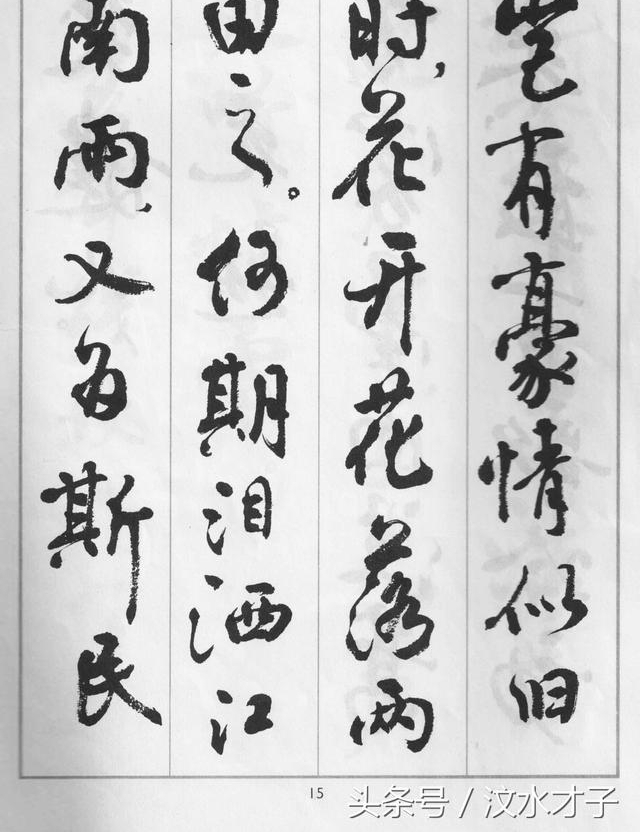 岂有豪情似旧
时,花开花落两
由之。何期泪洒江
南雨,又为斯民
15
头条号 / 汶水才子